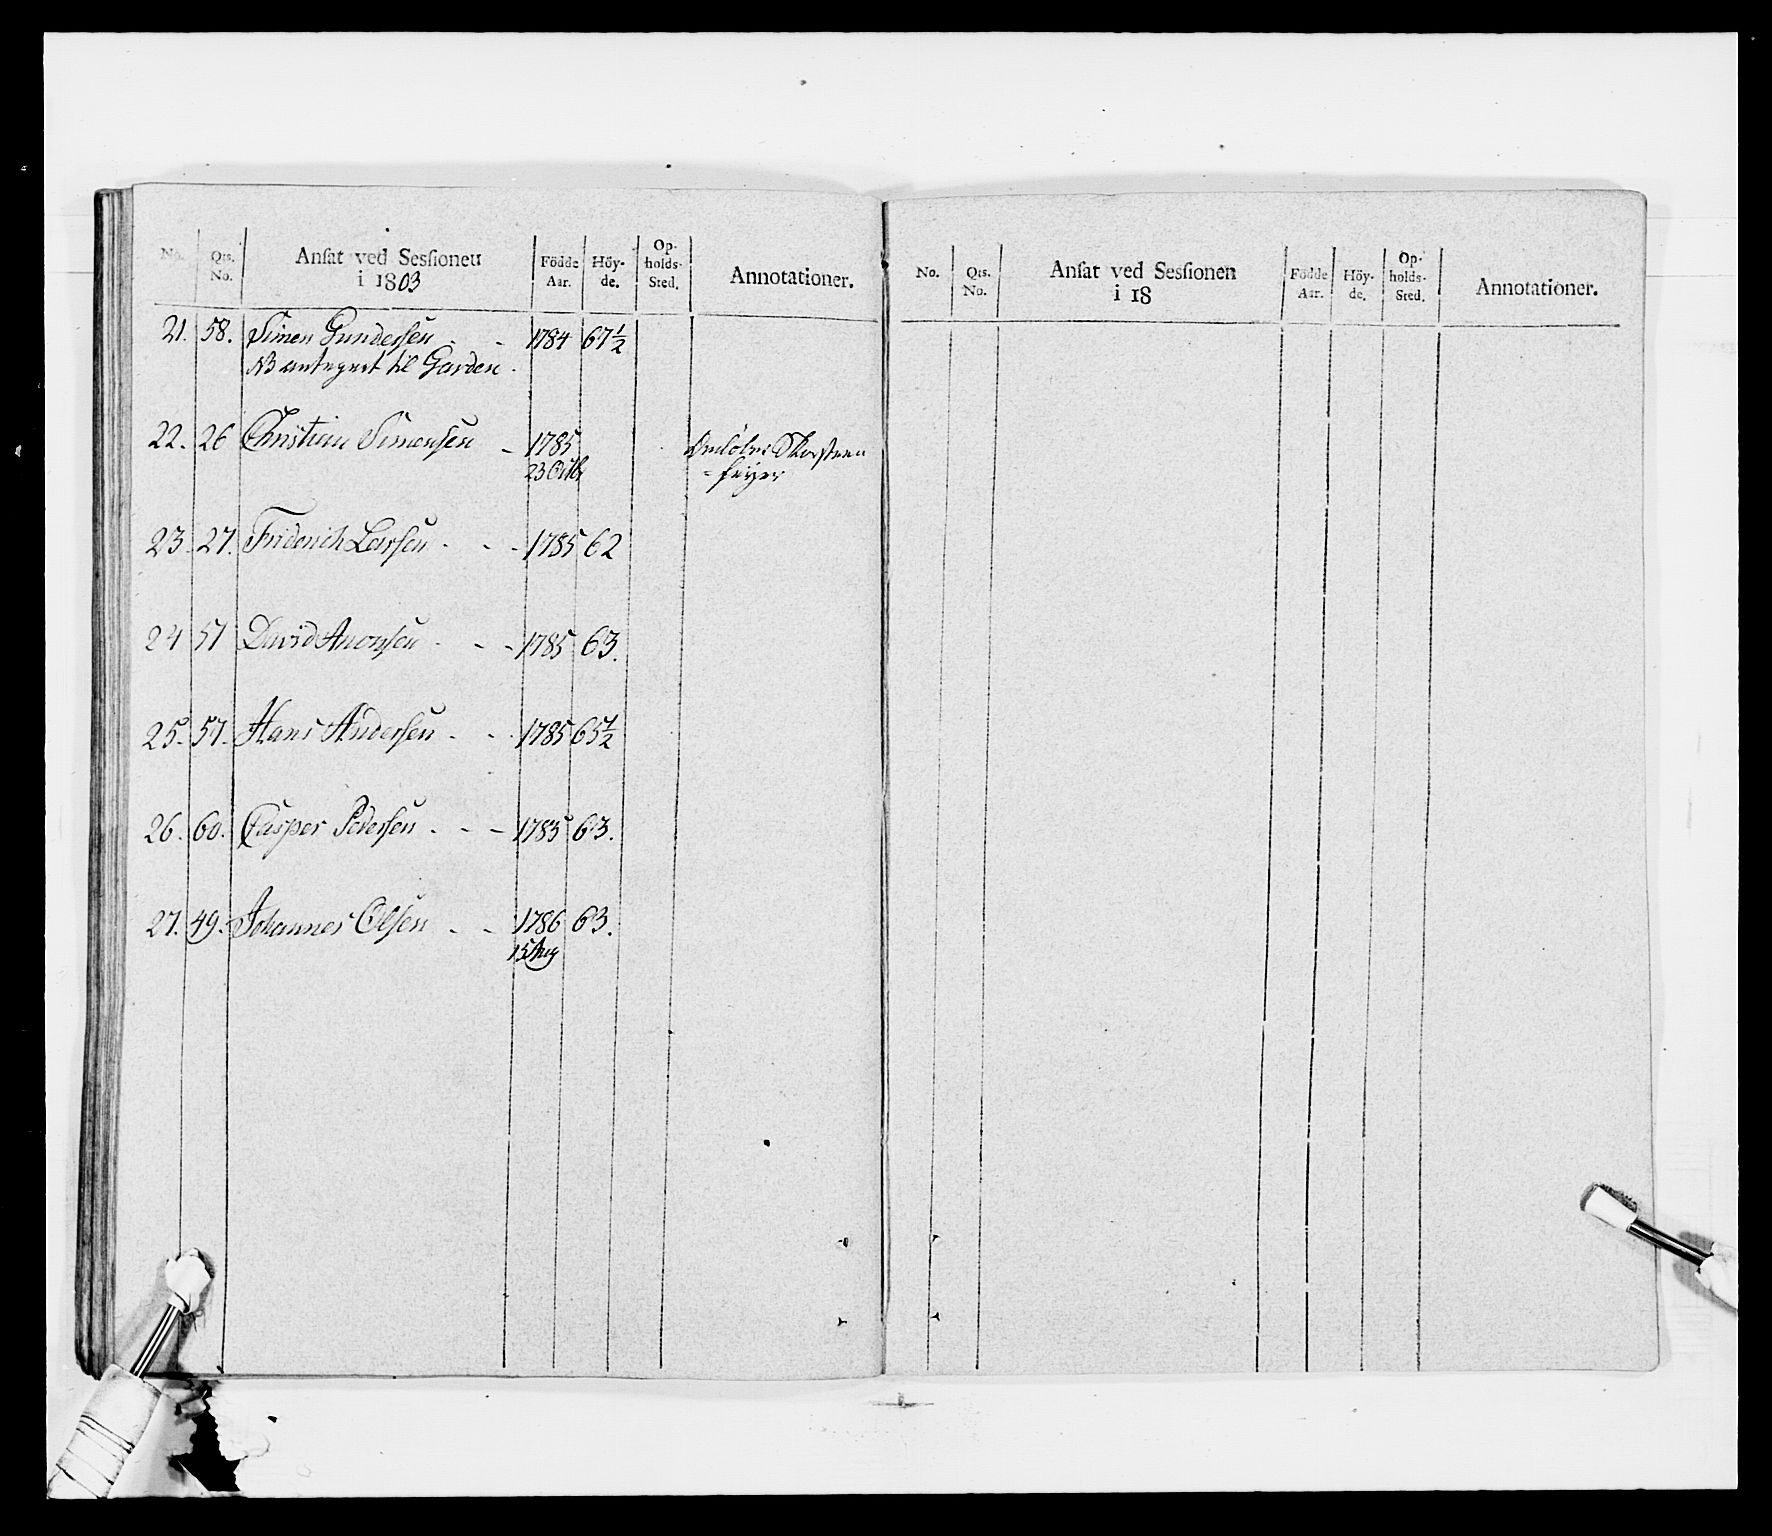 No. Qts. No. Ansat ved Sessionen i 1803 Födde Aar. Höy-de. Op-holds-Sted. Annotationer.
21. 58. Simen Gundersen - - 1784 67½
NB antegnet til Garden.
22. 26 Christian Simensen - 1785 Skorsteen
23 Octbr = feijer
23. 27. Friderich Larsen - - - 1785 62
24 57 David Aronsen - - - 1785 63.
25. 57. Hans Andersen - - - 1785 65½
26. 60. Casper Pedersen - - - 1785 63.
27. 49. Johannes Olsen - - 1786 63.
15 Aug
No. Qts. No. Ansat ved Sessionen i 18 Födde Aar. Höy-de. Op-holds-Sted. Annotationer.